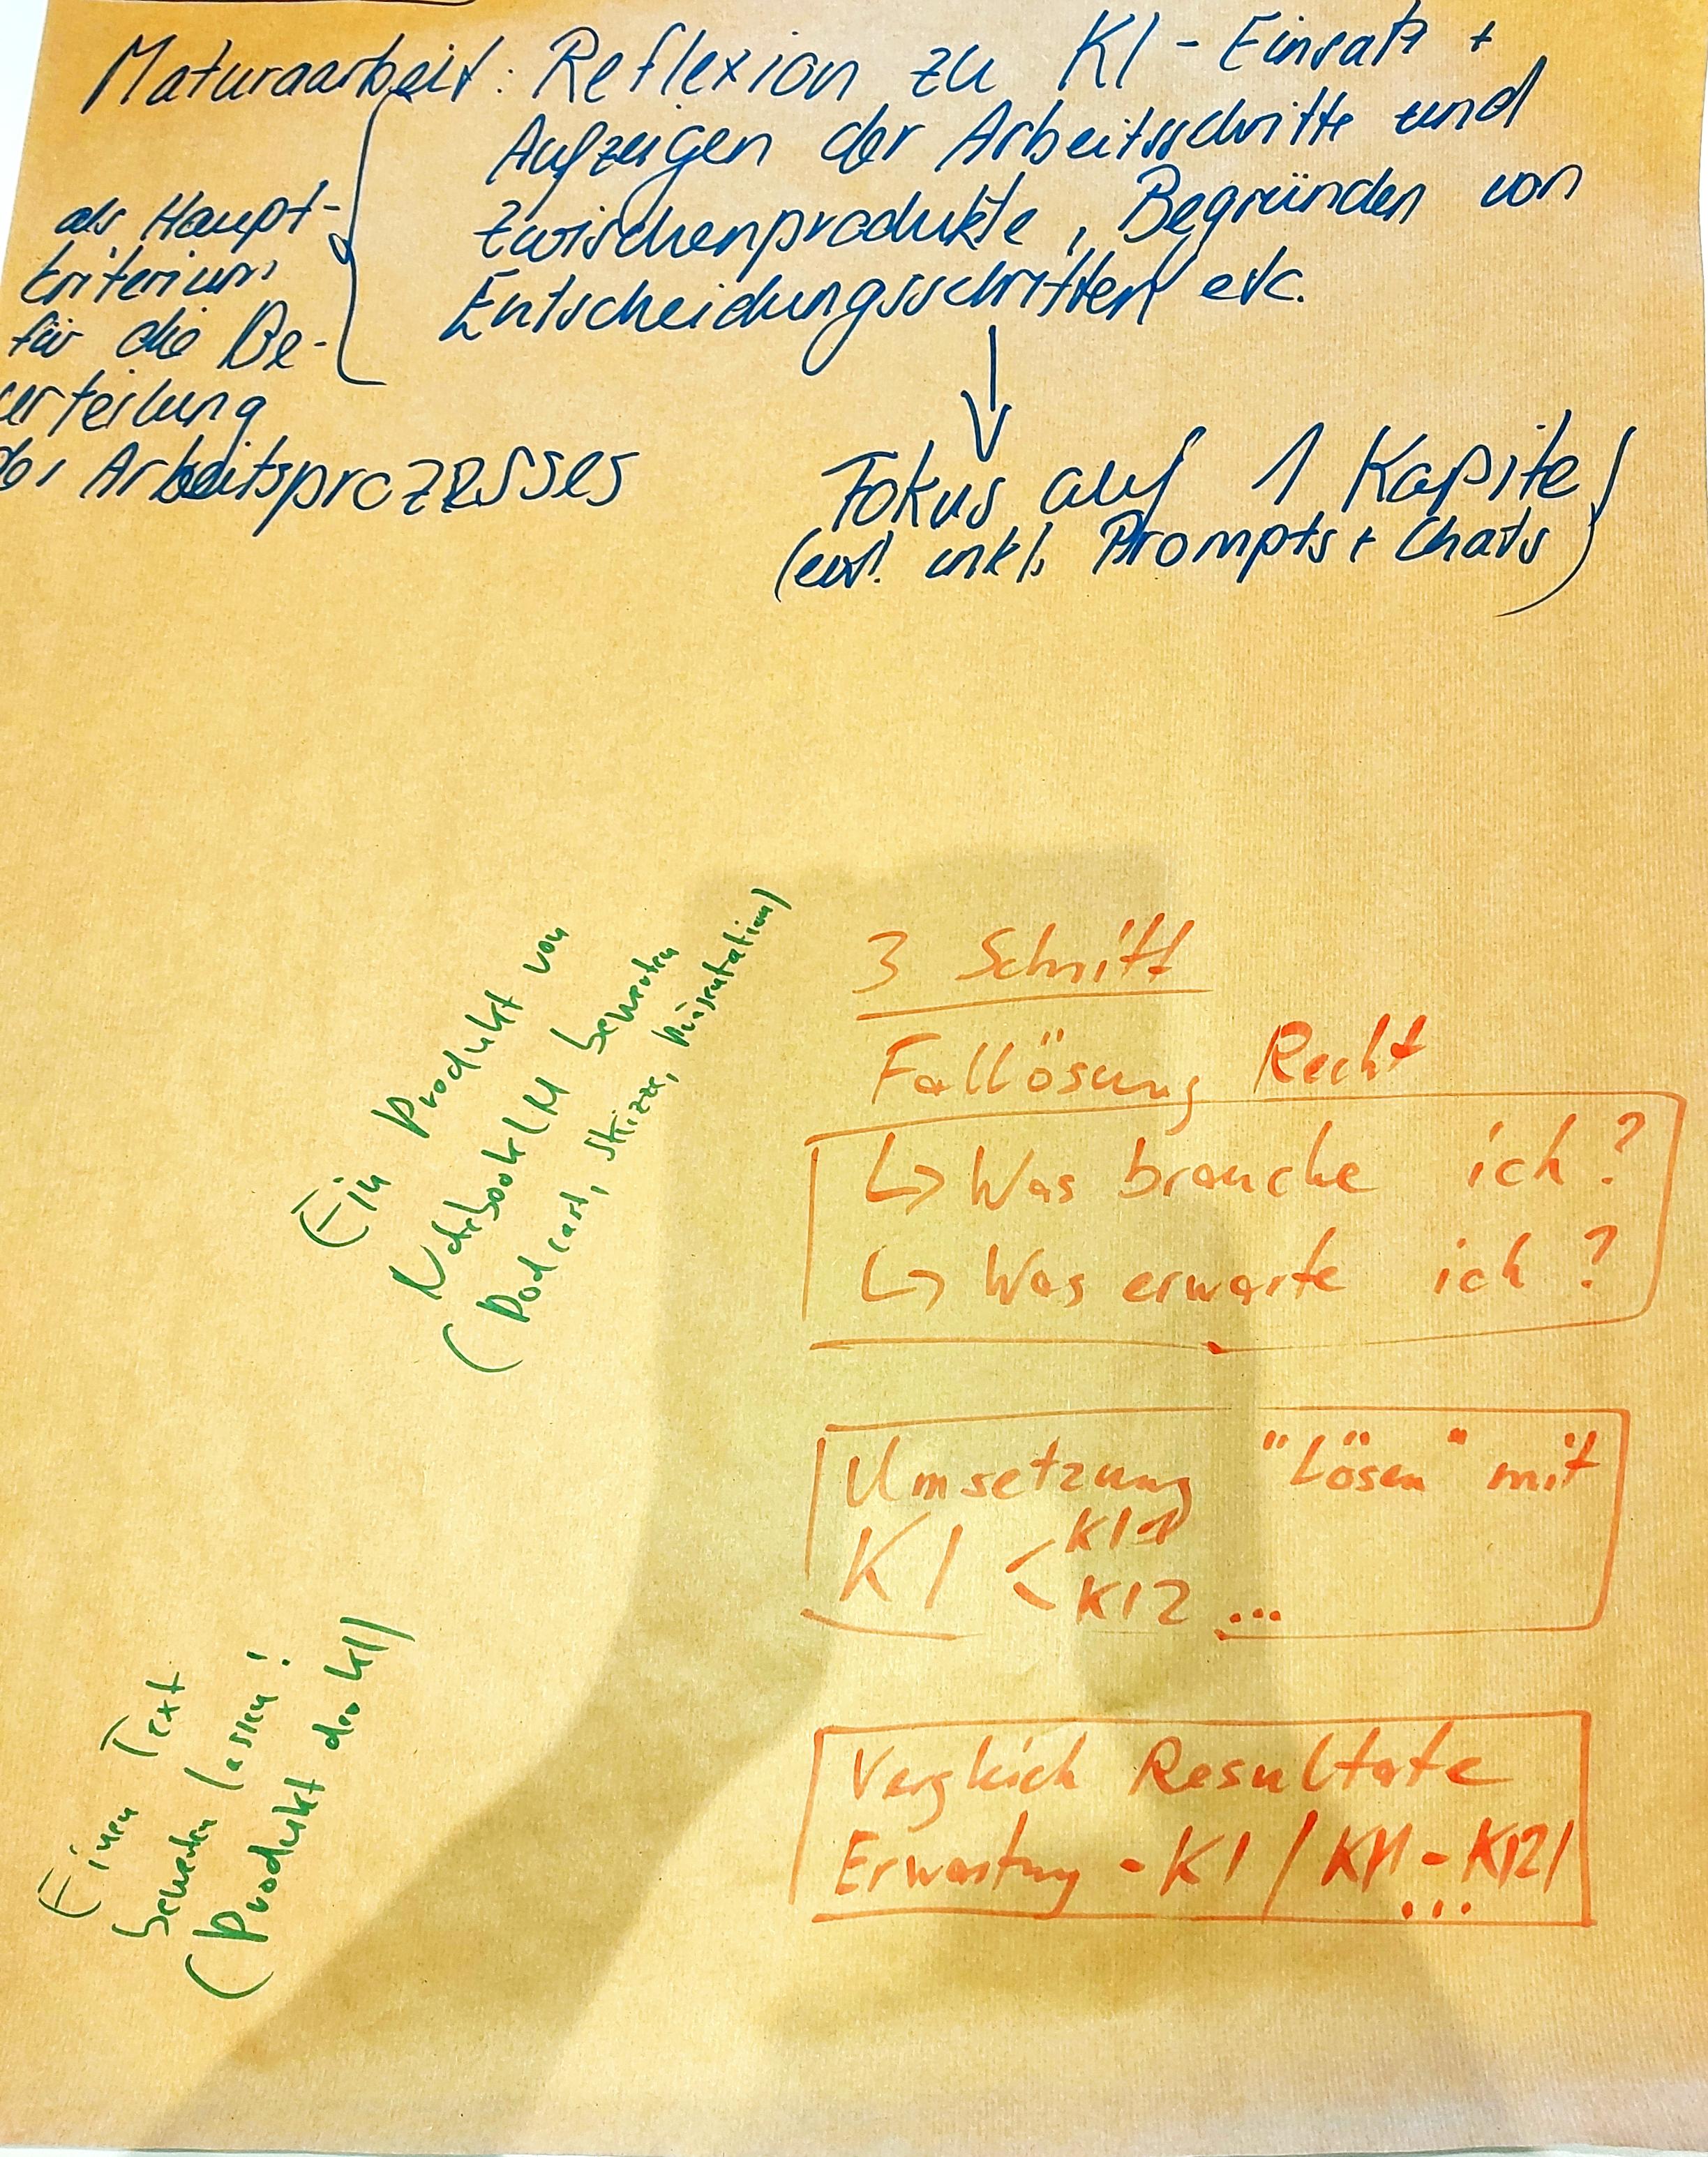 Maturaarbeit: Reflexion zu KI-Einsatz +
Aufzeigen der Arbeitsschritte und
Zwischenprodukte, Begründen von
Entscheidungsschritten etc.
als Haupt-
kriterium
für die Be-
urteilung
des Arbeitsprozesses
Fokus auf 1 Kapitel
(evt. inkl. Prompts + Chats)
Ein Produkt von
NotebookLM bewerten
(Podcast, Skizze, Präsentation)
3 Schritt
Fallösung Recht
↳ Was brauche ich?
↳ Was erwarte ich?
Umsetzung "Lösen" mit
KI < KI1
KI2 ...
Vergleich Resultate
Erwartung - KI / KI1 - KI2/
...
Einen Text
bewerten lassen!
(Produkt der KI)